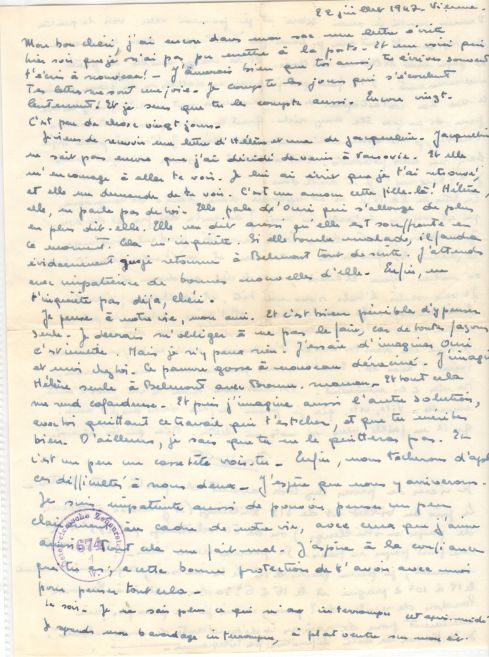 22 juillet 1947. Vienne.
Mon bon chéri, j'ai encore dans mon sac une lettre écrite
hier soir que je n'ai pas pu mettre à la poste. Et me voici qui
t'écris à nouveau! - J'aimerais bien que toi aussi, tu écrives souvent
Tes lettres me sont une joie. Je compte les jours qui s'écoulent
lentement. Et je sens que tu les comptes aussi. Encore vingt.
C'est peu de chose vingt jours.
Je viens de recevoir une lettre d'Hélène et une de Jacqueline. Jacqueline
ne sait pas encore que j'ai décidé de venir à Varsovie. Et elle
m'encourage à aller te voir. Je lui ai écrit que je t'ai retrouvé
et elle me demande de te voir. C'est un amour cette fille-là! Hélène,
elle, ne parle pas de toi. Elle parle d' qui s'allonge de plus
en plus dit-elle. Elle me dit aussi qu'elle est souffrante en
ce moment. Cela m'inquiète. Si elle tombe malade, il faudra
évidemment que je retourne à Belmont tout de suite. J'attends
avec impatience de bonnes nouvelles d'elle. Enfin, ne
t'inquiète pas déjà, chéri.
Je pense à notre vie, mon ami. Et c'est bien pénible d'y penser
seule. Je devrais m'obliger à ne pas le faire, car de toutes façons
c'est inutile. Mais je n'y peux rien. J'essaie d'imaginer
et moi chez toi. Le pauvre gosse à nouveau déraciné. J'imagine
Hélène seule à Belmont avec maman. Et tout cela
me rend cafardeuse. Et puis j'imagine aussi l'autre solution,
avec toi quittant ce travail qui t'est cher, et que tu mérites
bien. D'ailleurs, je sais que tu ne le quitteras pas. Et
c'est un peu un casse tête vois-tu. Enfin, nous tâcherons d'
ces difficultés à nous deux. J'espère que nous y arriverons.
Je suis impatiente aussi de pouvoir penser un peu
clairement au cadre de notre vie, avec ceux que j'aime
aussi. Tout cela me fait mal. J'aspire à la confiance
et à cette bonne protection de t'avoir avec moi
pour penser tout cela.
Le soir. Je ne sais plus ce qui m'a interrompu cet après-midi
Je reprends mon bavardage interrompu, à plat ventre sur mon lit.
674